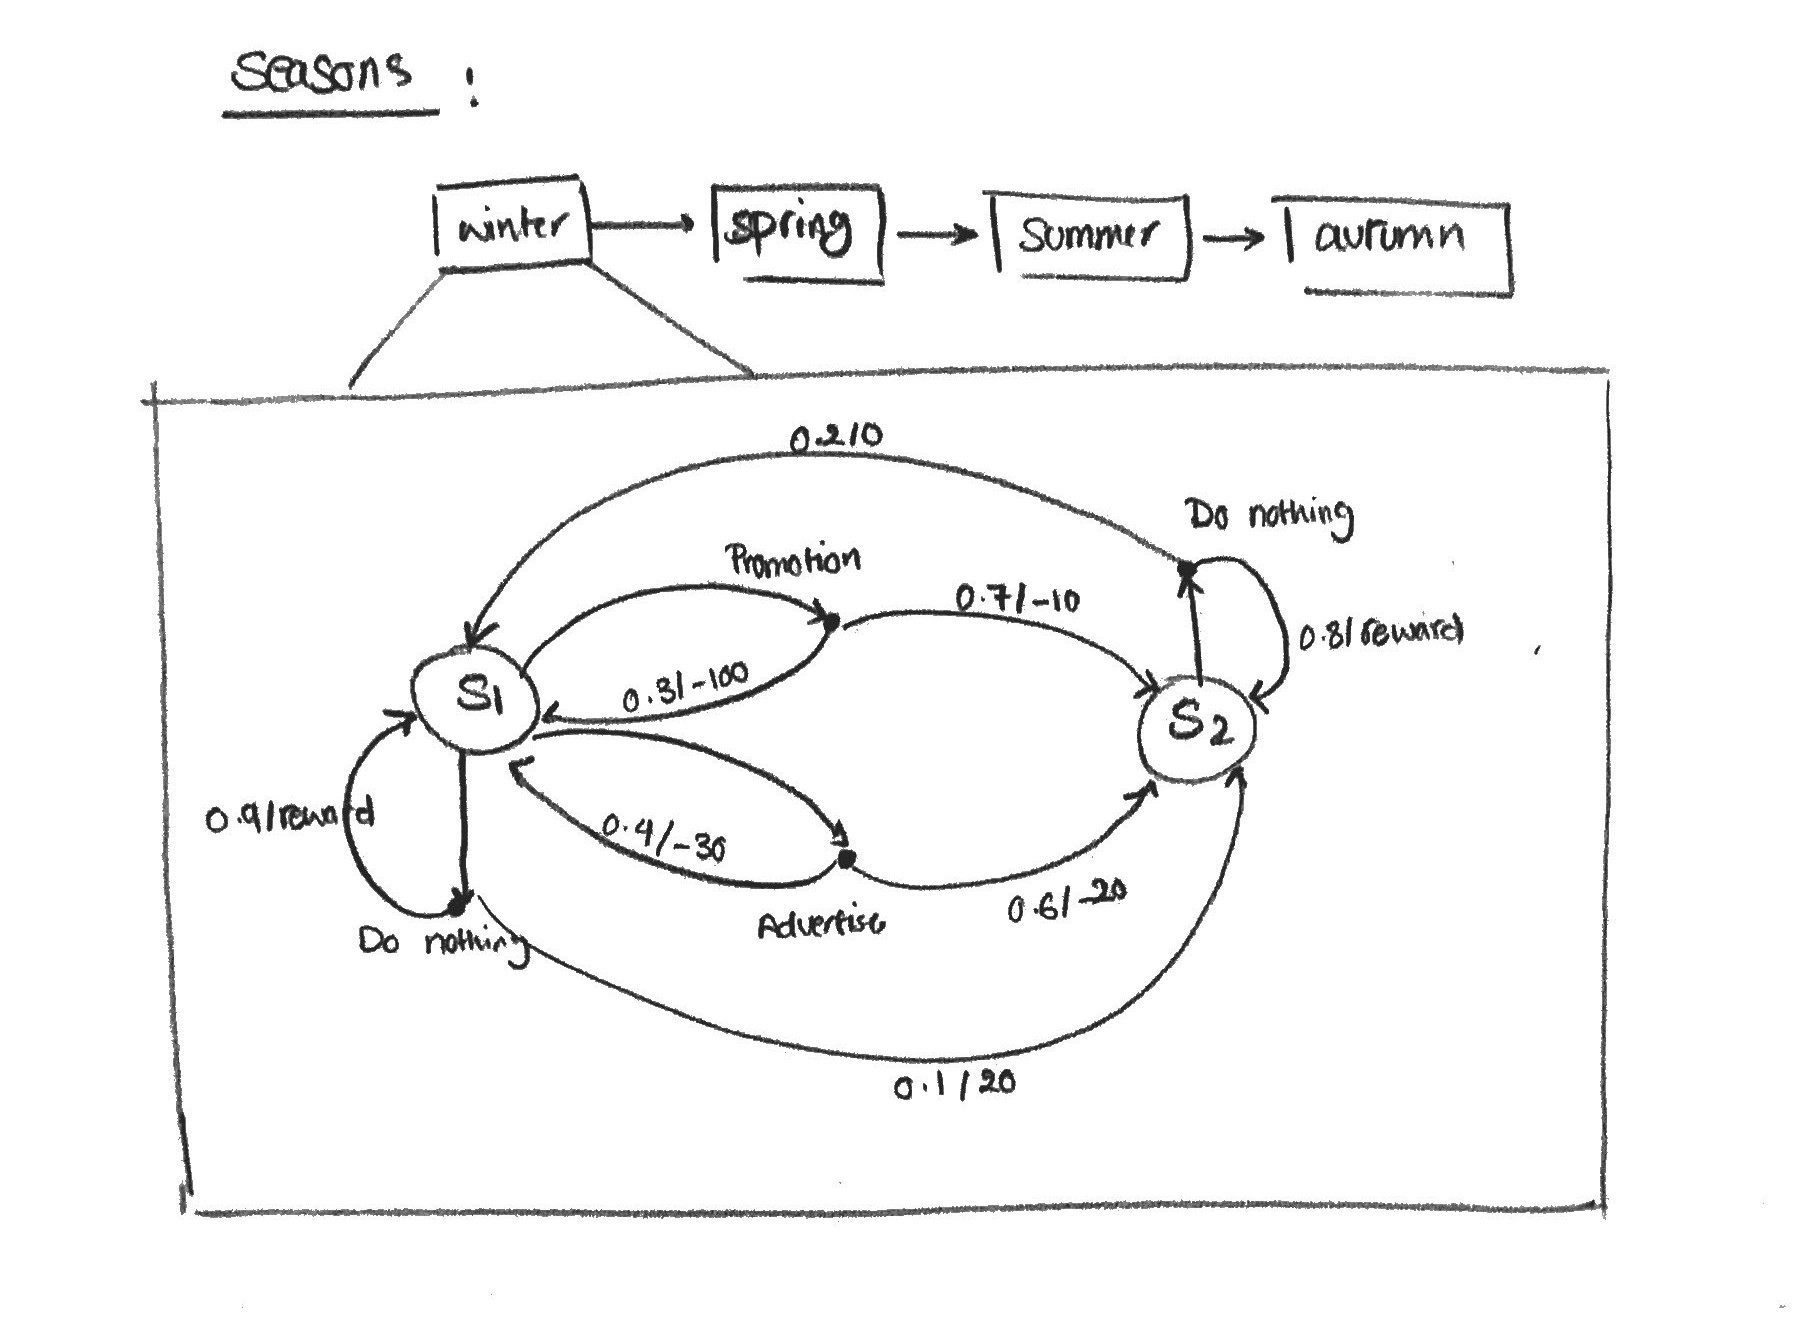 Seasons :
winter
spring
Summer
autumn
0.2/0
Do nothing
Promotion
0.7/-10
0.8/reward
0.3/-100
S1
S2
0.9/reward
0.4/-30
0.6/-20
Advertise
Do nothing
0.1/20